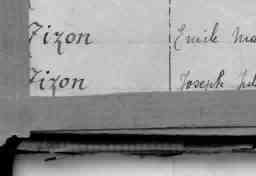 Tizon Emile
Tizon Joseph